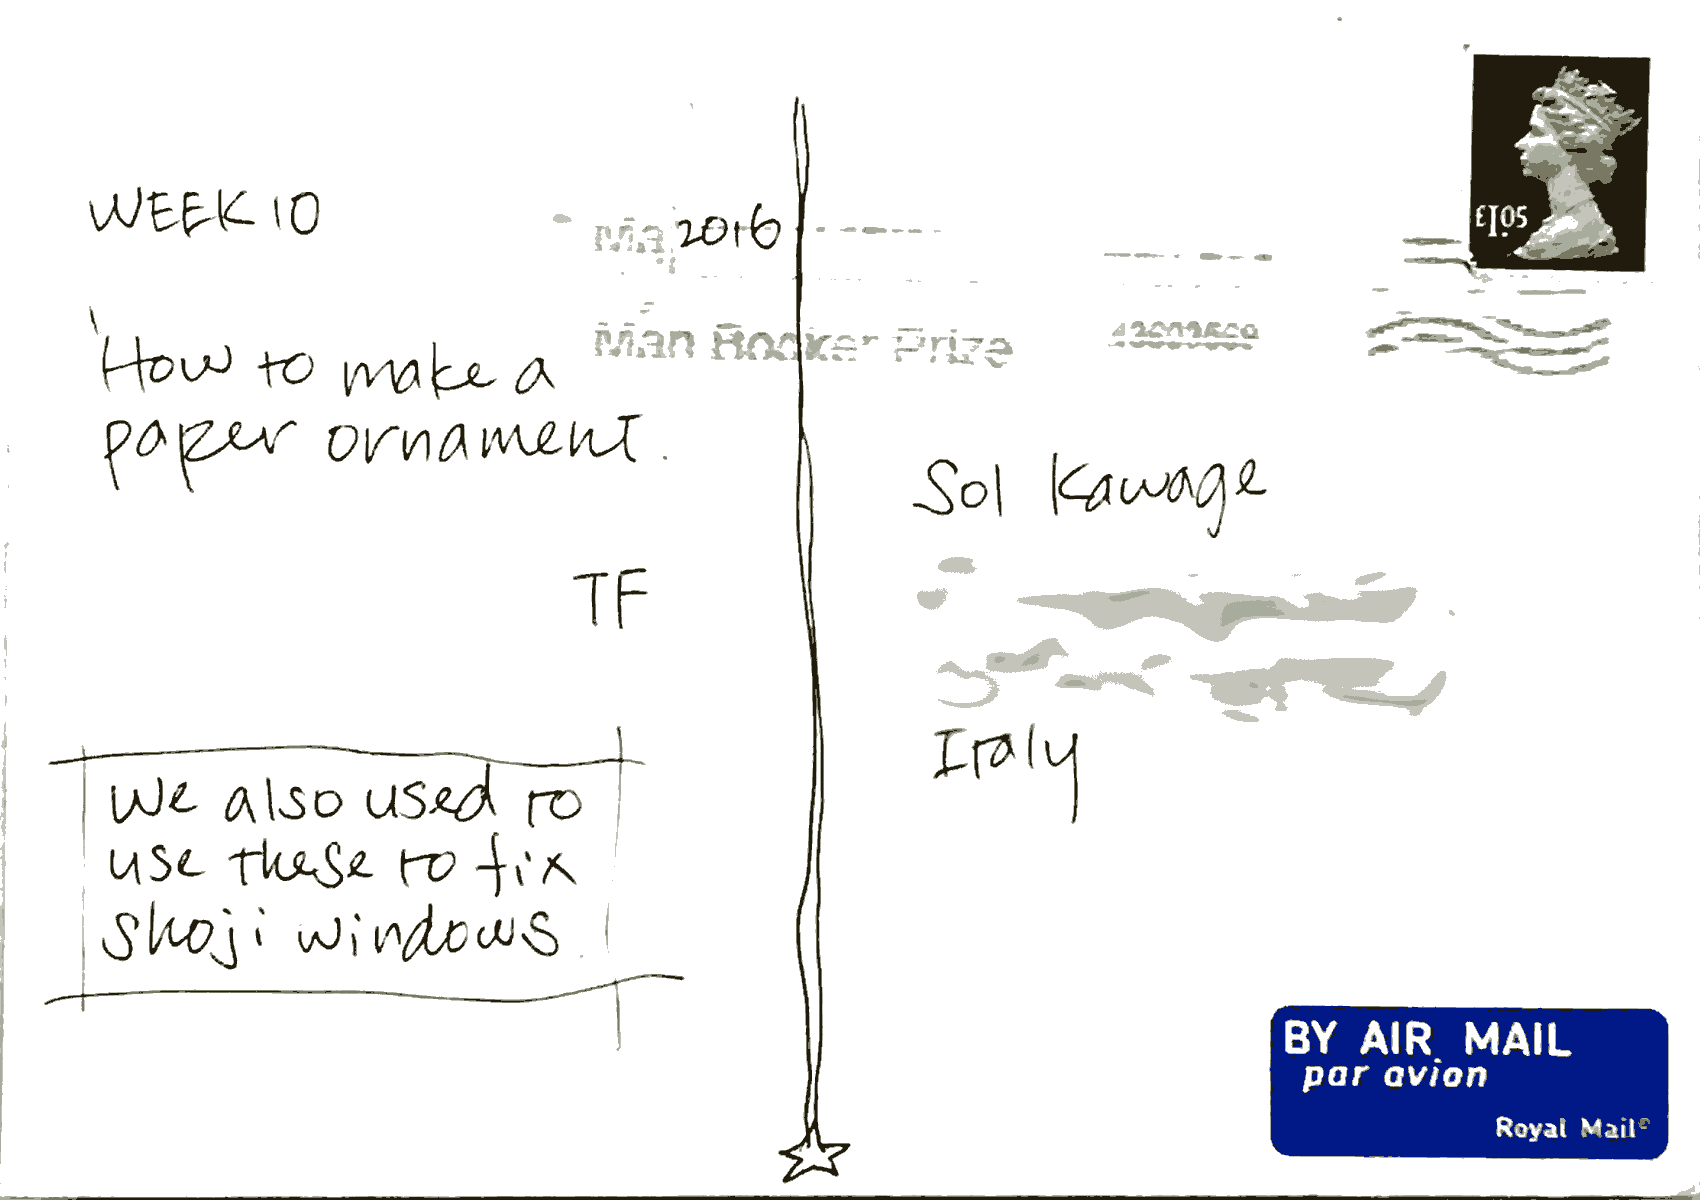 WEEK 10
2016
'How to make a
paper ornament.
TF
We also used to
use these to fix
shoji windows.
Man Booker Prize
£1.05
Sol Kawage
Italy
BY AIR MAIL
par avion
Royal Mail